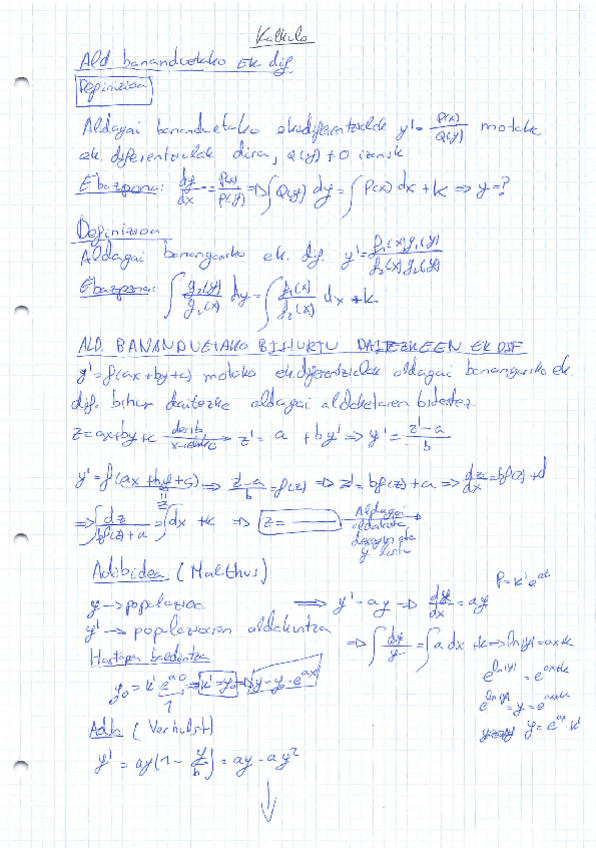 Kalkulo
Ald. bananduetako ek dif.
Definizioa
Aldagai bananduetako ekudiferentzialak y' = P(x)/Q(y) motako
ek. diferentzialak dira, Q(y) ≠ 0 izanik
Ebazpena: dy/dx = P(x)/P(y) => ∫Q(y) dy = ∫P(x) dx + k => y = ?
Definizioa
Aldagai banangarriko ek. dif. y' = f₁(x)g₁(y)/f₂(x)g₂(y)
Ebazpena: ∫g₂(y)/g₁(x) dy = ∫f₁(x)/f₂(x) dx + k
ALD. BANANDUETAKO BIHURTU DAITEZKEEN EK DIF
y' = f(ax+by+c) motako ek diferentzialak aldagai banangarriko ek
dif. bihur daitezke aldagai aldaketaren bidez
z = ax+by+c derib. z' = a + by' => y' = z'-a/b
y' = f(ax+by+c) => z'-a/b = f(z) => z' = bf(z)+a => dz/dx = bf(z)+d
z
=> ∫dz/bf(z)+a = ∫dx + k => z = Aldagai
aldaketa
desegin eta
y
Adibidea (Malthus)
P = k'e^at
y → populazioa => y' = ay => dy/dx = ay
y' → populazioaren aldakuntza => ∫dy/y = ∫a dx + k => ln|y| = ax+k
Hastapen baldintza e^ln|y| = e^ax+k
y₀ = k' e^a·0 => k' = y₀ => y = y₀·e^ax e^ln|y| = y = e^ax+k
1
y = e^ax k'
Adb (Verhulst)
y' = ay(1 - y/b) = ay - ay²